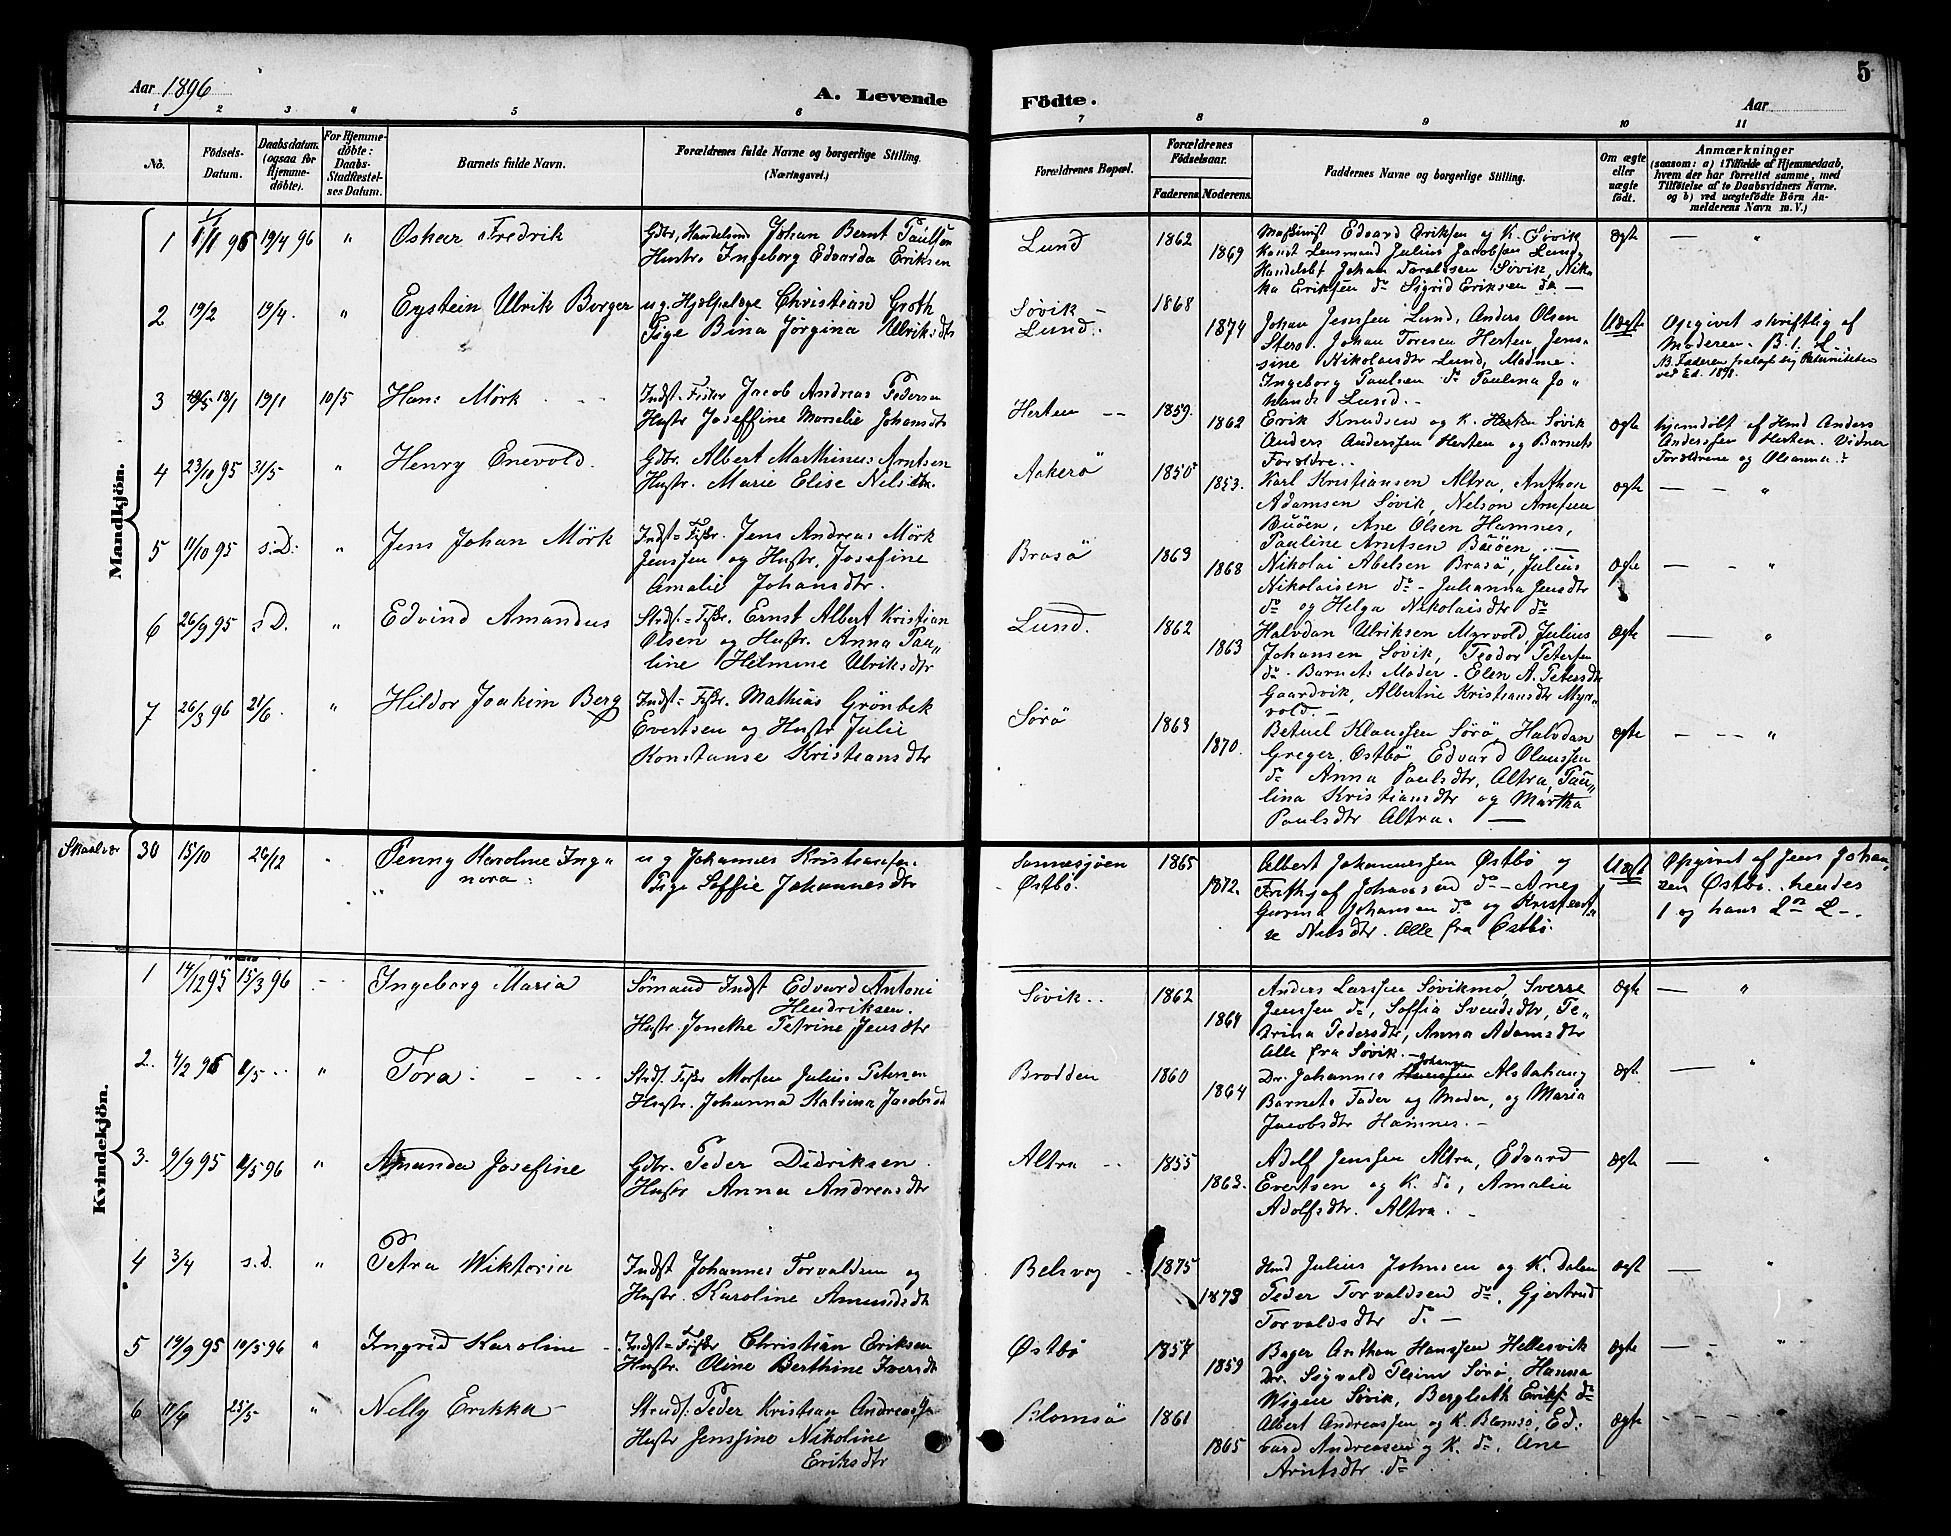 Aar 1896
A. Levende
Födte.
5
Aar
1 2 3 4 5 6 7 8 9 10 11
No.
Födsels-Datum.
Daabsdatum. (ogsaa for Hjemmedöbte).
For Hjemmedöbte: Daabs-Stadfæstelses Datum.
Barnets fulde Navn.
Forældrenes fulde Navne og borgerlige Stilling. (Næringsvei.)
Forældrenes Bopæl.
Forældrenes Födselsaar.
Faderens. Moderens.
Faddernes Navne og borgerlige Stilling.
Om ægte eller uægte født.
Anmærkninger
(saasom: a) i Tilfælde af Hjemmedaab,
hvem der har forrettet samme, med
Tilföielse af to Daabsvidners Navne.
og b) ved uægtefödte Börn Anmelderens Navn m. V.)
Mandkjön.
1 96 19/4 96 " Oskar Fredrik
Gdbr, Handelsmd Johan Bernt Paulsen
Hustr. Ingeborg Edvarda Eriksen
Lund 1862 1869
Edvard Eriksen og K. Søvik
Lensmand Julius Jacobsen Lund,
Handelsbt Johan Søvik, Nik-
ka Eriksen do Sigrid Eriksen do —
Ægte — "
2 19/2 19/4. " Eystein Ulrik Borger
u.g. Hjælpelæge Christian Groth
Pige Bina Jørgina Ulriksdtr
Søvik – Lund. 1868 1874
Johan Jenssen Lund, Anders Olsen
Stero. Johan Toresen Herten, Jens-
sine Nikolaisdtr Lund, Madme.
Ingeborg Paulsen do Paulina Jo "
Lund. –
Uægte
Opgivet skriftlig af
Moderen. B. 1. L.
3 18/1 19/1 10/5 Hans Mörk
Indst. Fisker Jacob Andreas Pedersen
Hustr Joseffine Johansdtr
Herten -- 1859. 1862
Erik Knudsen og K. Søvik
Anders Anderssen Herten og Barnets
Forældre.
Ægte
hjemdøbt af Hmd Anders
Anderssen Herten. Vidner
Forældrene og Oleanna
4 23/10 95 31/5 " Henry Enevold.
Gdbr. Albert Marthinus Arntsen
Hustr. Marie Elise Nelsdtr.
Aakerö 1850 1853.
Karl Kristiansen Altra, Anthon
Adamsen Søvik, Nelson Arntsen
Buöen, Ane Olsen Hamnes,
Pauline Arntsen Buöen. —
Ægte — — "
5 11/10 95 s.D. " Jens Johan Mörk
Indst = Fiskr. Jens Andreas Mörk
Jenssen og Hustr. Josefine
Amalie Johansdtr.
Brasö 1863 1868
Nikolai Abelsen Brasö, Julius
Nikolaisen do – Julianna Jensdtr
do og Helga Nikolaisdtr do
Ægte — - "
6 26/9 95 s.D. " Edvind Amandus
Strds. = Fiskr. Ernst Albert Kristian
Olsen og Hustr. Anna Pau„
line Hilmine Ulriksdtr
Lund. 1862 1863
Halvdan Ulriksen Myrvold, Julius
Johansen Søvik, Teodor Petersen
do. Barnets Moder – Elen A. Petersdtr
Gaardvik, Albertine Kristiansdtr Myr-
vold. —
Ægte — "
7 26/3 96 21/6. " Hildor Joakim Berg
Indst = Fiskr. Mathias Grönbek
Evertsen og Hustr Julie
Konstanse Kristiansdtr
Sörö 1863 1870.
Betuel Klaussen Sörö, Halvdan
Greger Østbö, Edvard Olaussen
do Anna Paulsdtr, Altra, Pau„
lina Kristiansdtr og Martha
Paulsdtr Altra. —
Ægte — — "
30 15/10 26/12 " Penny Karoline Ing "
nora.
u g Johannes Kristiansen.
Pige Soffie Johannesdtr
Sannesjøen
Østbö. 1865 1872.
Albert Johannessen Østbö og
Frithjof Johansen do – Ane
Johansen do og
Nilsdtr. Alle fra Østbö.
Uægte
Opgivet af Jens Johan-
sen Østbö. hendes
1 og hans 2n L –.
Kvindekjön.
1 14/12 95 15/3 96 - Ingeborg Maria
Sømand Indst Edvard Antoni
Hendriksen.
Hustr. Jonette Petrine Jensdtr
Søvik.. 1862 1864
Anders Larssen Søvikmo, Sverre
Jenssen do, Soffia Svendsdtr, Pe„
trina Pedersdtr, Anna Adamsdtr
Alle fra Søvik. –
Ægte — "
2. 4/2 96 /5 " Tora.
Strds. Fiskr Morten Julius Petersen
Hustr. Johanna Katrina Jacobsdtr
Brodden 1860 1864
Dr. Johannes Johansen Alstahaug
Barnets Fader og Moder, og Maria
Jacobsdtr Hamnes. –
Ægte — "
3. 9/9 95 /5 96 " Amanda Josefine
Gdbr. Peder Didriksen.
Hustr Anna Andreasdtr
Altra 1855 1863.
Adolf Jenssen Altra, Edvard
Evertsen og K. do, Amalia
Adolfsdtr. Altra. –
Ægte — "
4 3/4 s.d. " Petra Wiktoria
Indst Johannes Torvaldsen og
Hustr. Karoline Amundsdtr
Belsvog 1875 1873
Hmd Julius Johnsen og K. Dalen
Peder Torvaldsen do, Gjertrud
Torvaldsdtr do –
Ægte — "
5 19/9 95 10/5 96 " Ingrid Karoline
Indst = Fiskr Christian Eriksen
Hustr. Oline Berthine Iversdtr
Østbö 1857 1859
Bager Anthon Hanssen Hellesvik
Dr. Sigvald Sörö, Hanna
Wigen Søvik, Berglioth Eriks. do
Ægte — - "
6 11/4 25/5 " Nelly Erikka
Strds. Peder Kristian Andreassen
Hustr Jenssine Nikoline
Eriksdtr
Blomsö 1861 1865
Albert Andreassen og K. Blomsö, Ed-
vard Andreasen og K. do. Ane
Arntsdtr do
Ægte - - - "